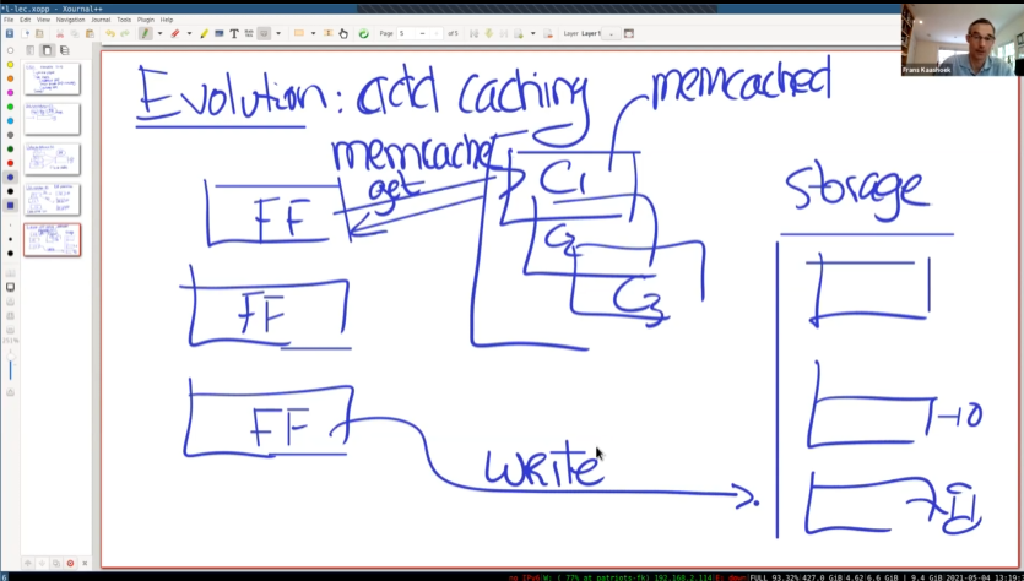 *l-lec.xopp - Xournal++
File Edit View Navigation Journal Tools Plugin Help
Page 5 of 5 Layer Layer 1
Frans Kaashoek
Evolution: add caching
memcached
memcache
get
C1
C2
C3
FF
FF
FF
storage
write
no IPv6 W: ( 72% at patriots-fk) 192.168.2.114 E: down FULL 93.32% 427.0 GiB 4.62 6.6 GiB | 9.4 GiB 2021-05-04 13:19